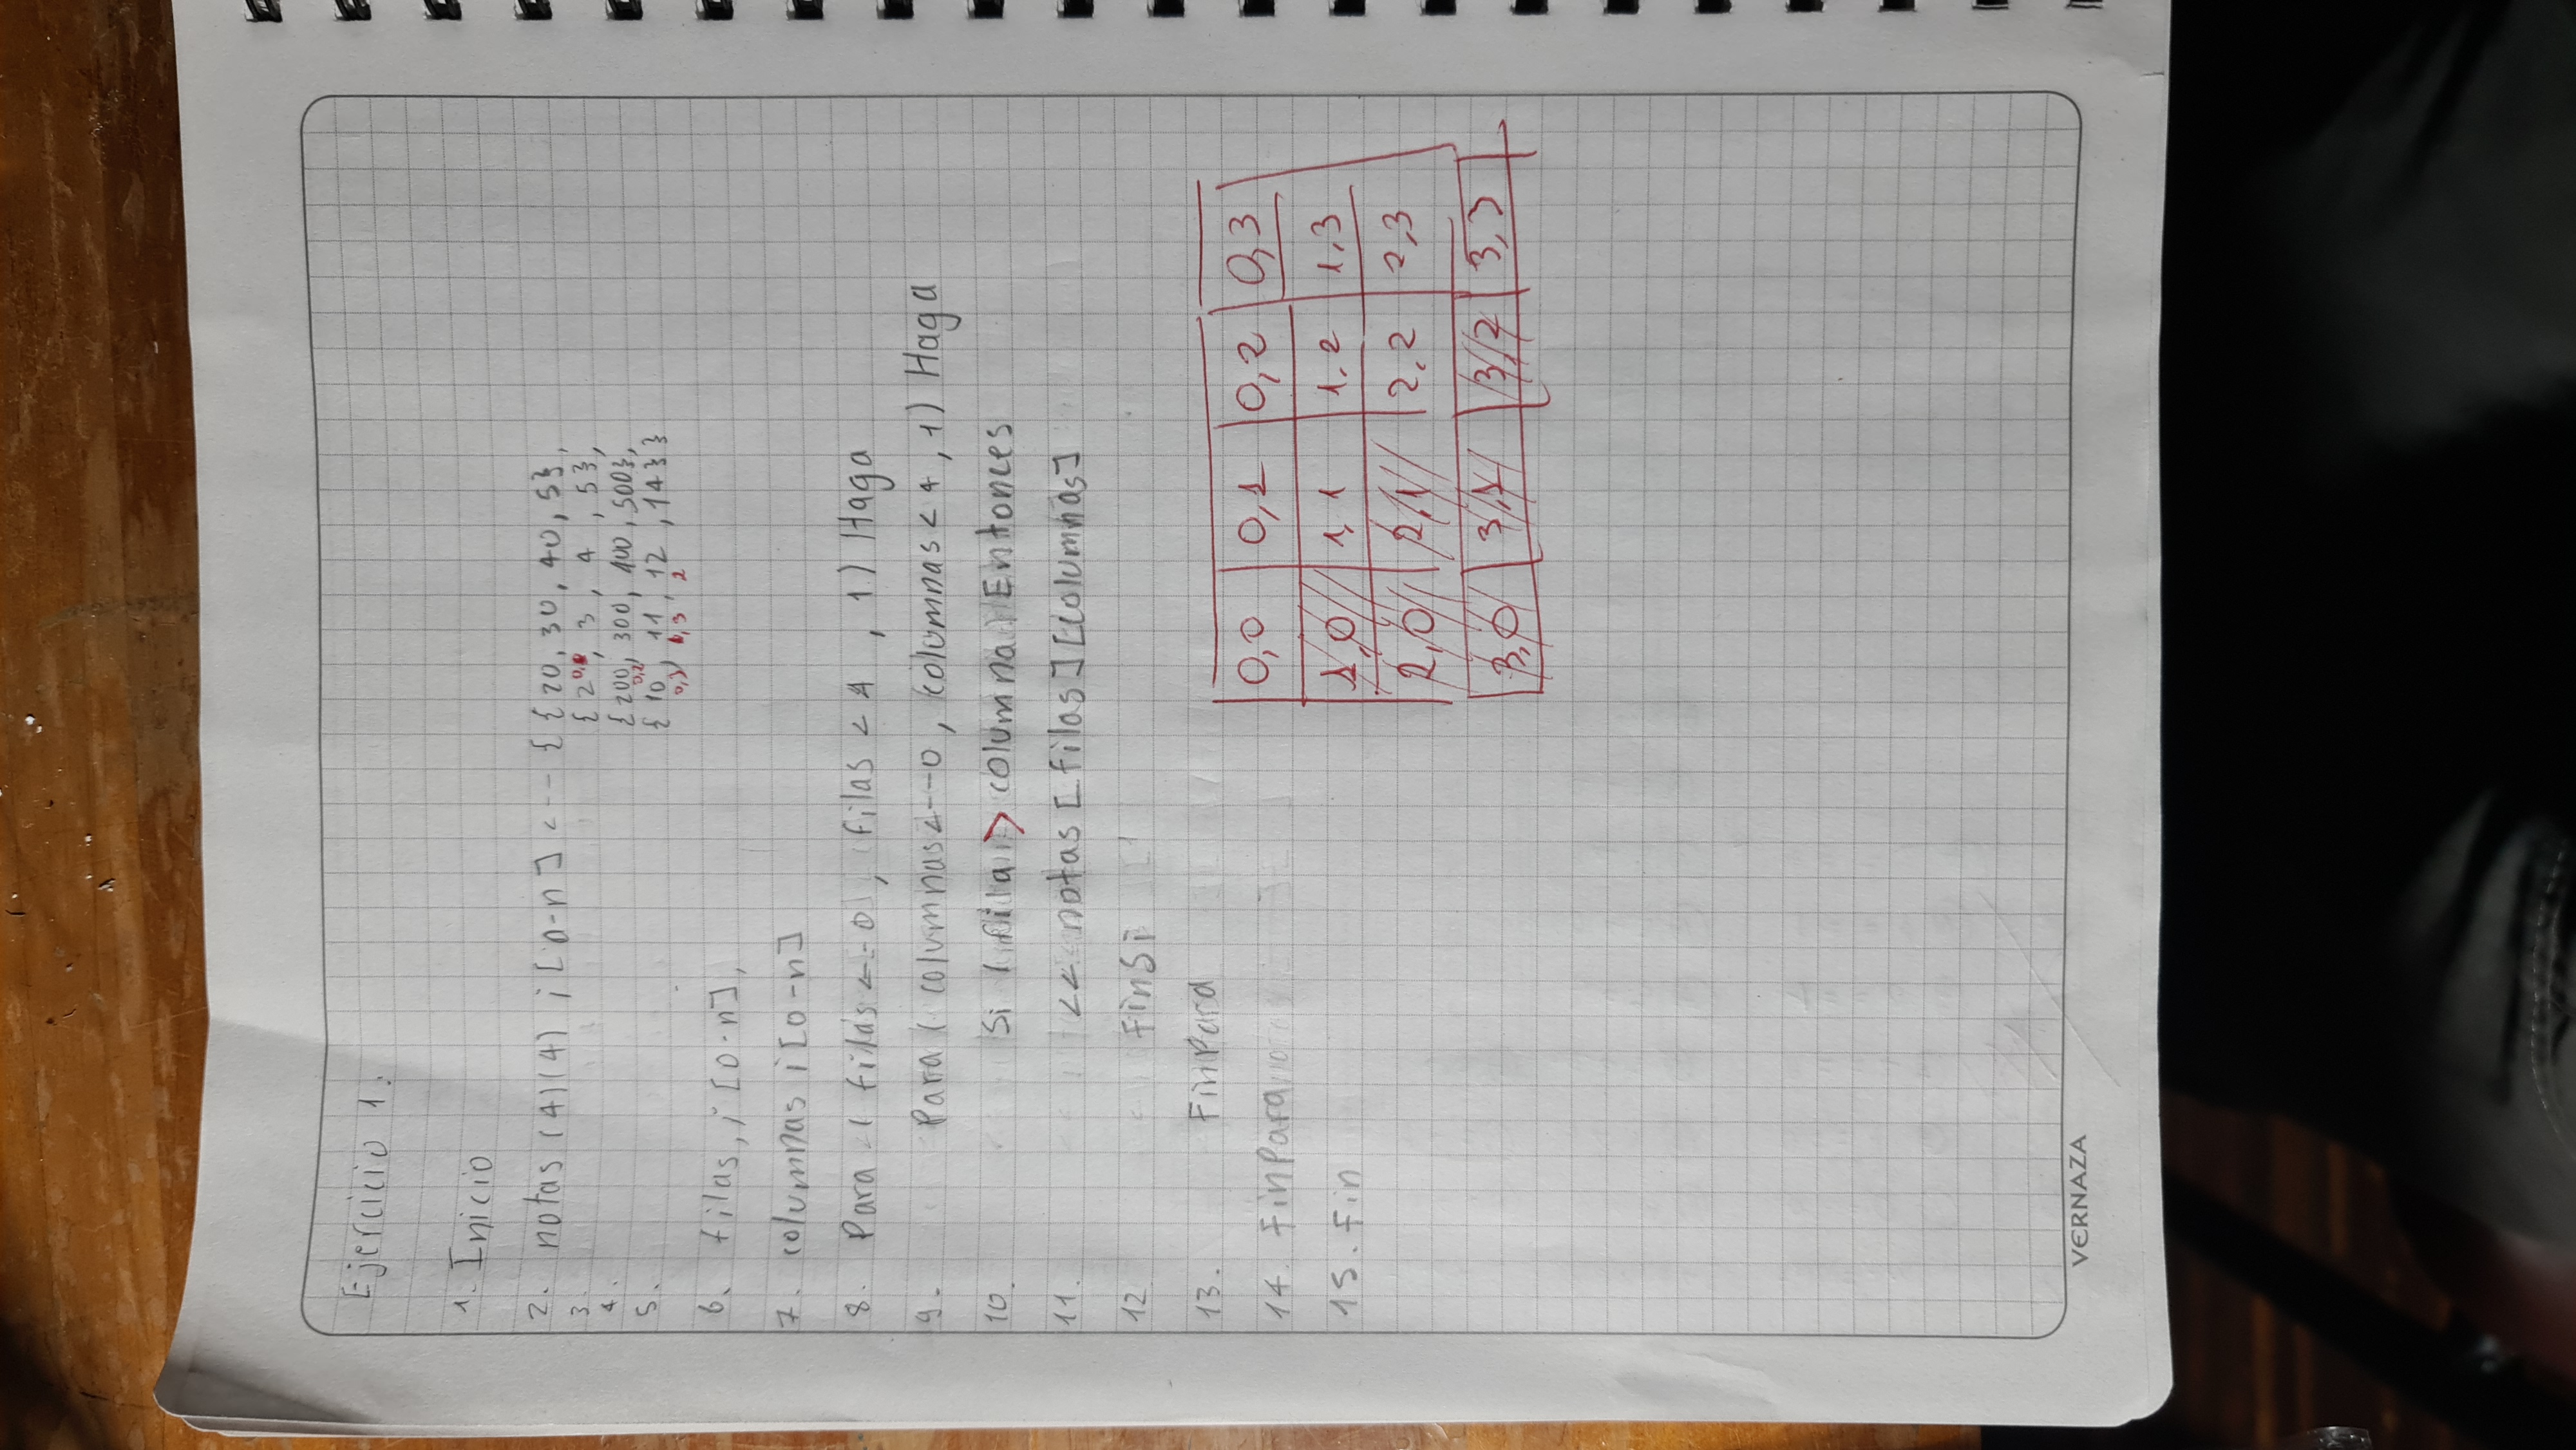 Ejercicio 1:
1. Inicio
2. notas (4)(4) i [0-n] <-- { {20, 30, 40, 5},
3 {2, 3, 4, 5},
0,
4. {200, 300, 400, 500},
0,2
5. {10, 11, 12, 14} }
0,3 3 2
6. filas, i [0-n],
7. columnas i [0-n]
8. Para ( filas <--0 , filas < 4 , 1) Haga
9. Para ( columnas <--0 , columnas < 4 , 1) Haga
10. Si ( fila > columna ) Entonces
11. << notas [filas] [columnas]
12 FinSi
13. FinPara
14. FinPara
15. Fin
0,0 0,1 0,2 0,3
1,0 1,1 1,2 1,3
2,0 2,1 2,2 2,3
3,0 3,1 3,2 3,3
VERNAZA